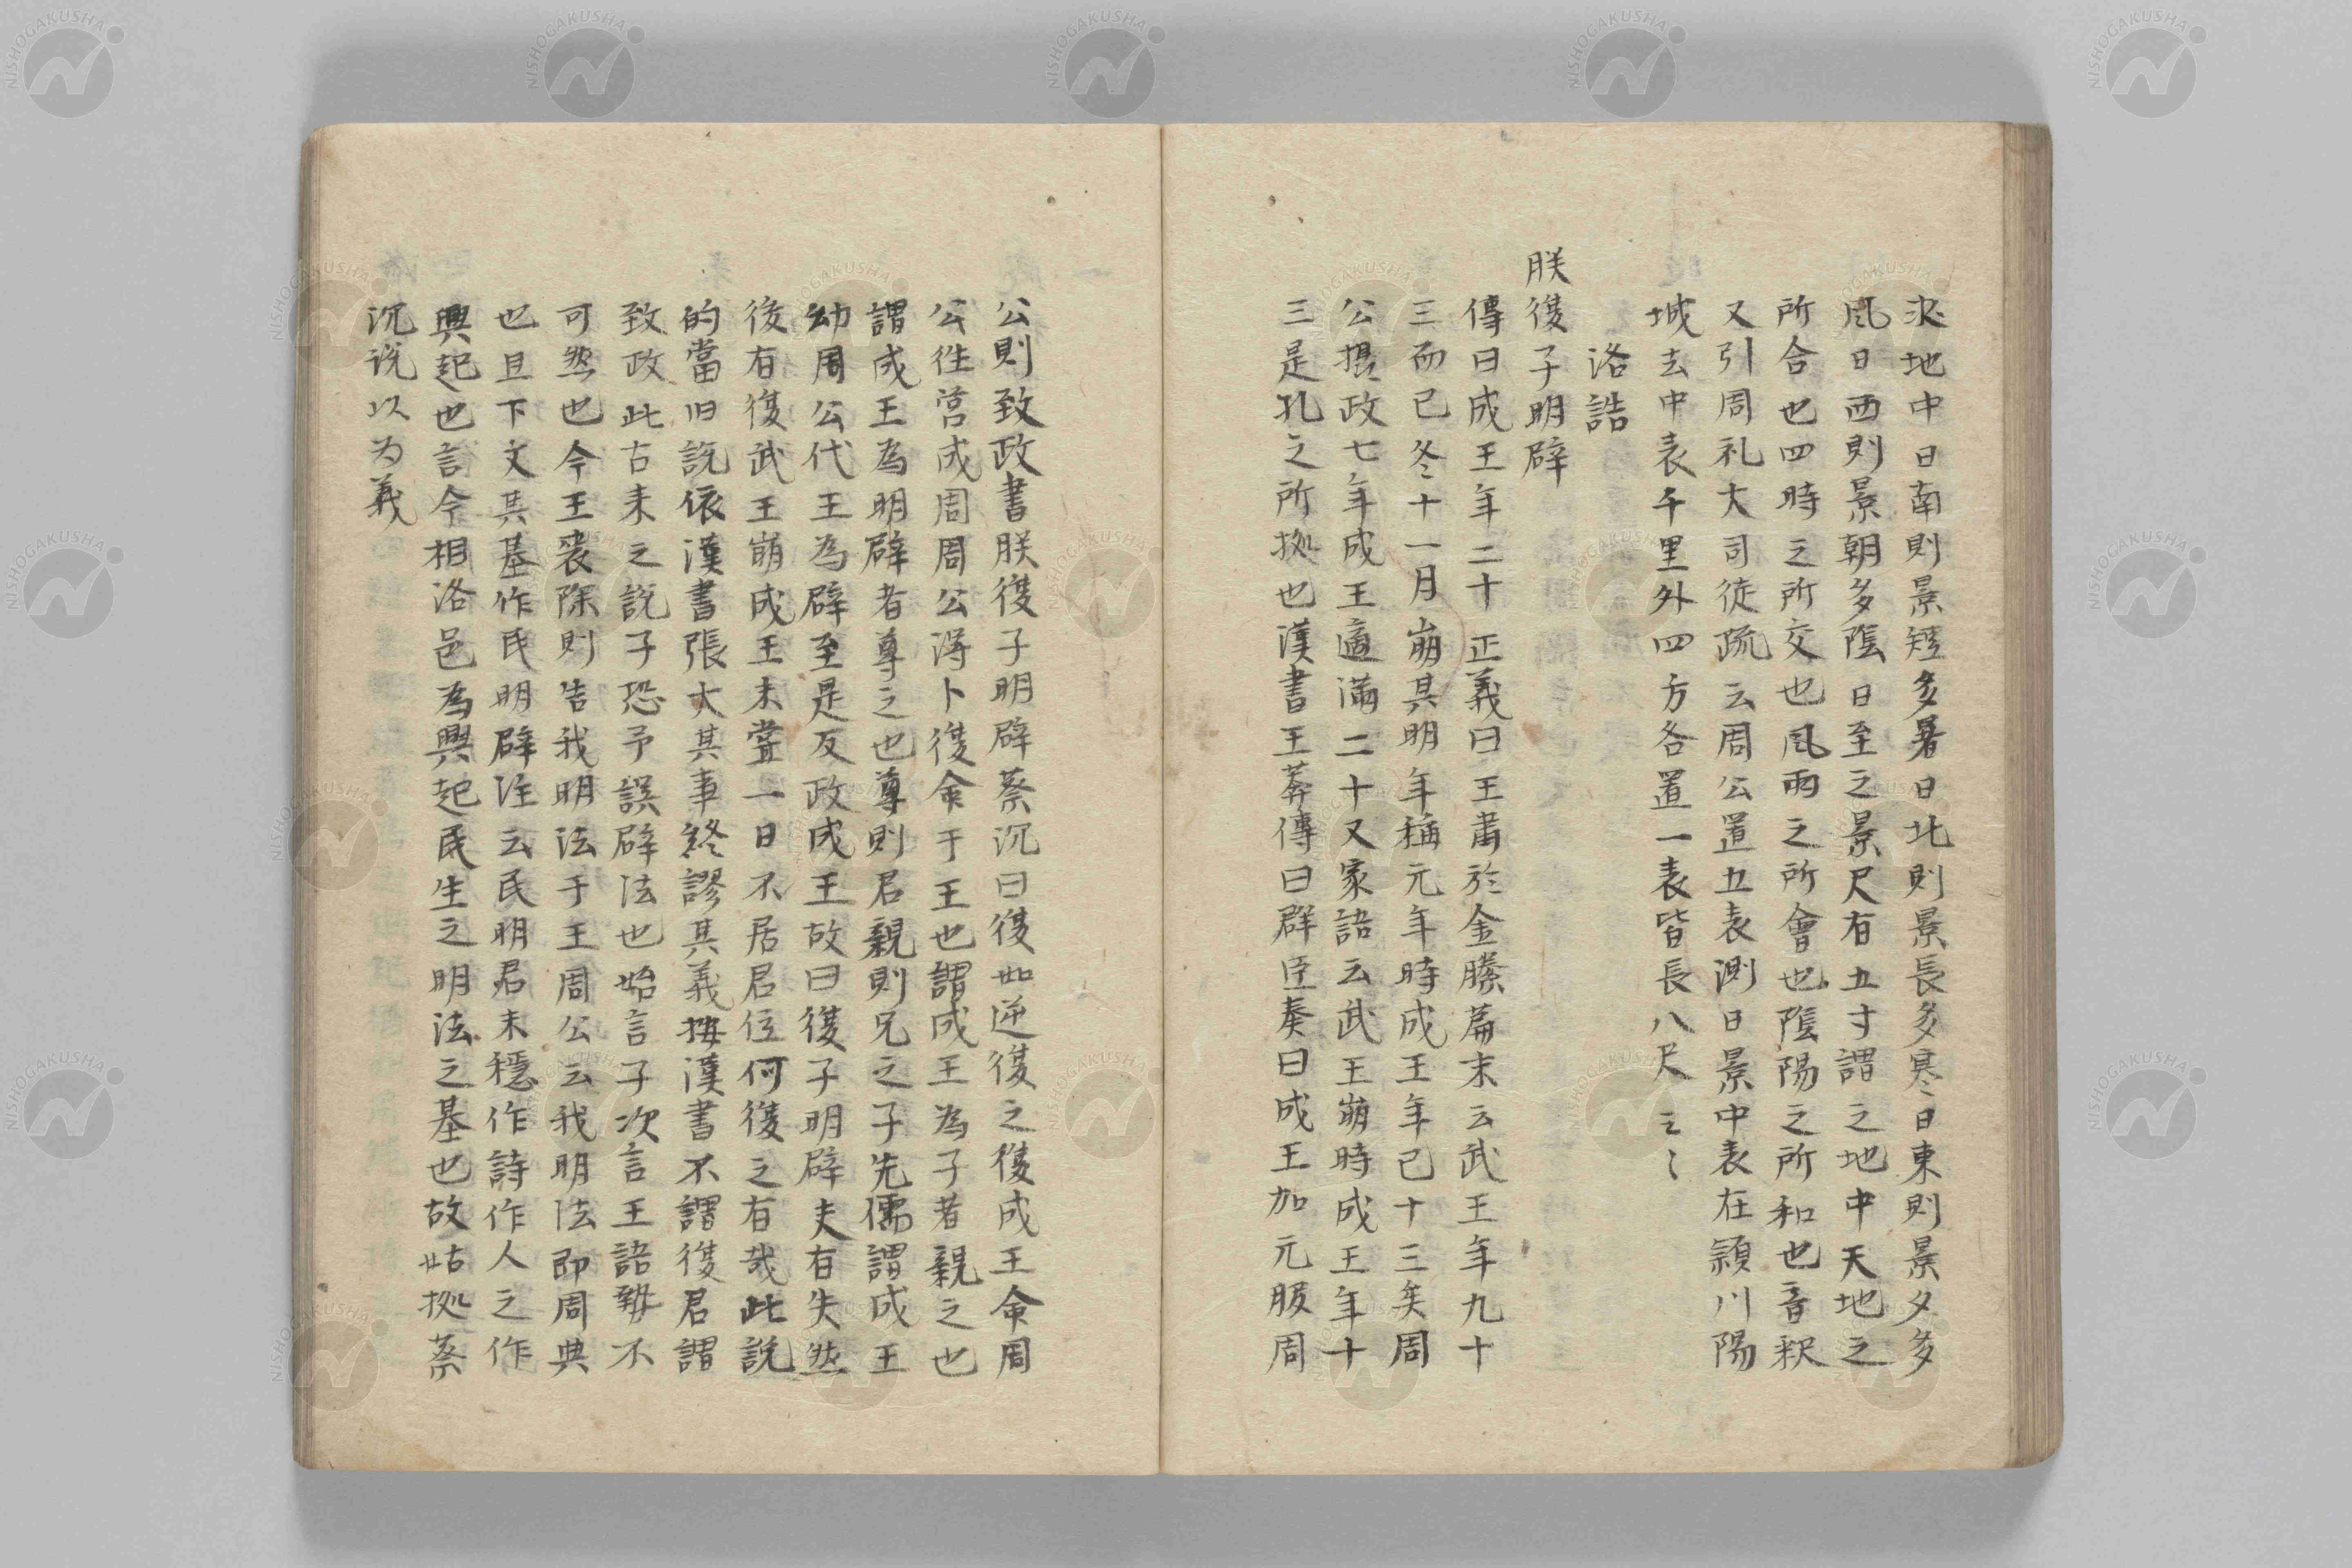 求地中日南則景短多暑日北則景長多寒日東則景夕多
風日西則景朝多隂日至之景尺有五寸謂之地中天地之
所合也四時之所交也風雨之所會也隂陽之所和也音釈
又引周礼大司徒疏云周公置五表測日景中表在潁川陽
城去中表千里外四方各置一表皆長八尺云〻
洛誥
朕復子明辟
傳曰成王年二十 正義曰王肅於金縢篇末云武王年九十
三而已冬十一月崩其明年稱元年時成王年已十三矣周
公摂政七年成王適滿二十又家語云武王崩時成王年十
三是孔之所拠也漢書王莽傳曰群臣奏曰成王加元服周
公則致政書朕復子明辟蔡沉曰復如逆復之復成王命周
公徃営成周周公得卜復命于王也謂成王為子者親之也
謂成王為明辟者尊之也尊則君親則兄之子先儒謂成王
幼周公代王為辟至是反政成王故曰復子明辟夫有失然
後有復武王崩成王未嘗一日不居君位何復之有哉此説
的當旧説依漢書張大其事終謬其義按漢書不謂復君謂
致政此古来之説子恐予誤辟法也始言子次言王語勢不
可然也今王喪除則告我明法于王周公云我明法即周典
也且下文其基作民明辟注云民明君未穏作詩作人之作
興起也言今相洛邑為興起民生之明法之基也故姑拠蔡
沉説以为義